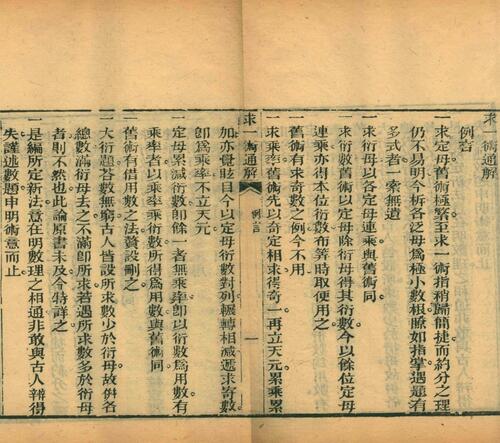 求一術通解
例言
一求定母舊術極繁至求一術指稍歸簡捷而約分之理
仍不易明今析各泛母爲極小數根瞭如指掌遇題有
多式者一索無遺
一求衍母以各定母連乘與舊術同
一求衍數舊術以定母除衍母得其衍數今以餘位定母
連乘亦得本位衍數布算時取便用之
一舊術有求奇數之例今不用
一求乘率舊術先以奇定相求得奇一再立天元累乘累
求一術通解 例言 一
加亦覺眩目今以定母衍數對列輾轉相減遞求奇數
卽爲乘率不立天元
一定母累減衍數卽餘一者無乘率卽以衍數爲用數有
乘率者以乘率乘衍數所得爲用數與舊術同
一舊術有借用數之法贅設刪之
一大衍題荅數無窮古人皆設所求數少於衍母故倂各
總數滿衍母去之不滿卽所求若遇所求數多於衍母
者則不然也此論原書未及今特詳之
一是編所定新法意在明數理之相通非敢與古人辯得
失謹述數題申明術意而止